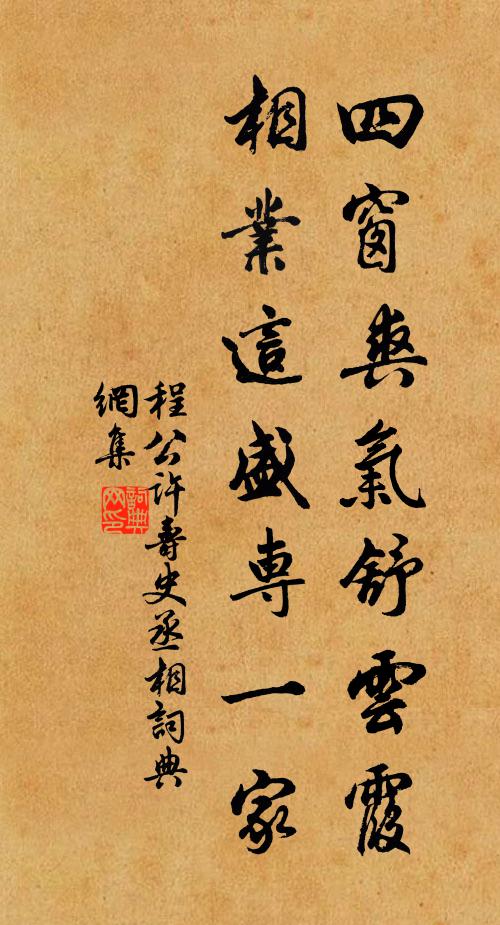 四窗爽氣舒雲霞
相業這盛專一家
程公許壽史丞相詞典
網集
詞典
网印